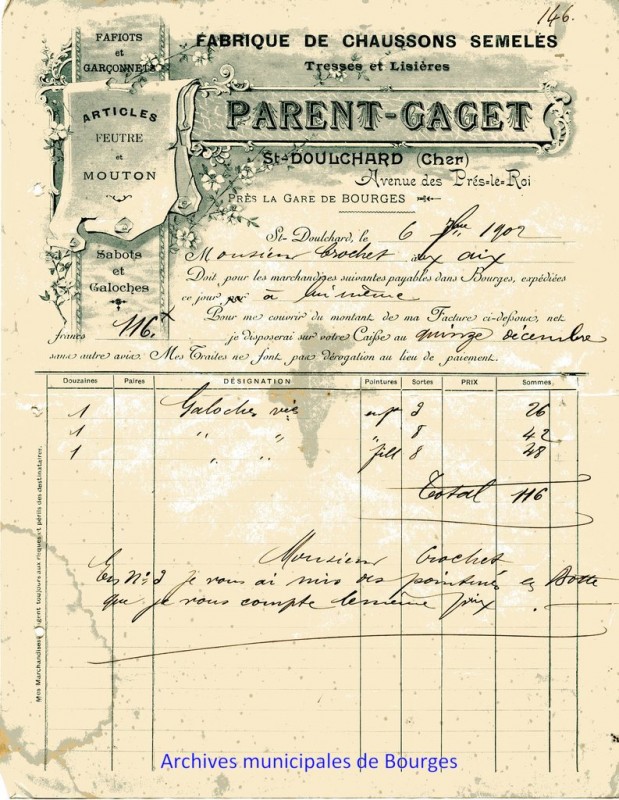 146.
FAFIOTS
et
GARÇONNETS
ARTICLES
FEUTRE
et
MOUTON
Sabots
et
Galoches
FABRIQUE DE CHAUSSONS SEMELÉS
Tresses et Lisières
PARENT-GAGET
St-DOULCHARD (Cher)
Avenue des Prés-le-Roi
PRÈS LA GARE DE BOURGES
St-Doulchard, le 6 1902
Monsieur Crochet aux aix
Doit pour les marchandises suivantes payables dans Bourges, expédiées
ce jour par à lui même
Pour me couvrir du montant de ma Facture ci-dessous, net
francs 116. je disposerai sur votre Caisse au quinze décembre
sans autre avis. Mes Traites ne font pas dérogation au lieu de paiement.
Douzaines Paires DÉSIGNATION Pointures Sortes PRIX Sommes
1 Galoches 2 26
1 " " " 8 42
1 " " fill 8 48
Total 116
Monsieur Crochet
En No 2 je vous ai mis des pointures en Botte
que je vous compte le même prix
Mes Marchandises voyagent toujours aux risques et périls des destinataires.
Archives municipales de Bourges